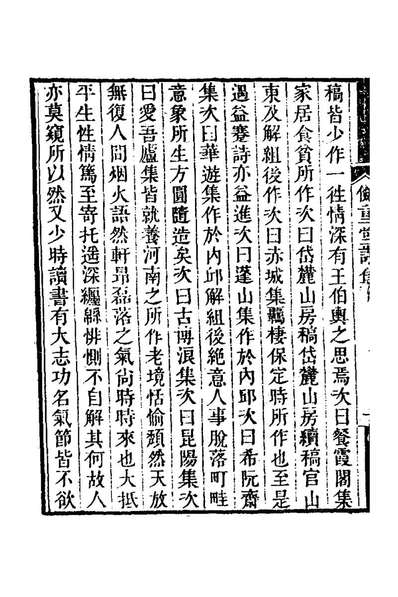 稿皆少作一徃情深有王伯輿之思焉次曰餐霞閣集
家居食貧所作次曰岱麓山房稿岱麓山房續稿官山
東及解組後作次曰赤城集羈棲保定時所作也至是
遇益蹇詩亦益進次曰蓬山集作於內邱次曰希阮齋
集次曰華遊集作於內邱解組後絶意人事脫落町畦
意象所生方圓隨造矣次曰古博浪集次曰昆陽集次
曰愛吾廬集皆就養河南之所作老境恬愉頹然天放
無復人間烟火語然軒昂磊落之氣尙時時來也大抵
平生性情篤至寄托遥深纒緜悱惻不自解其何故人
亦莫窺所以然又少時讀書有大志功名氣節皆不欲